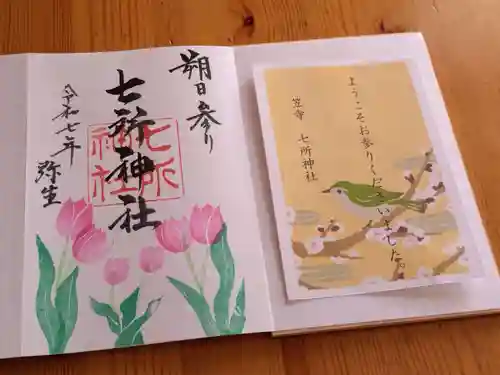 朔日参り
七所神社
七所
神社
令和七年 弥生
ようこそお参りくださいました
笠寺 七所神社